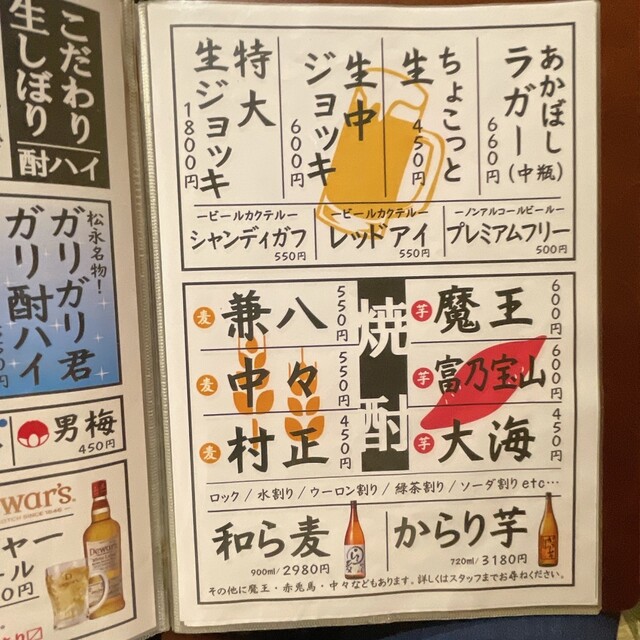 こだわり
生しぼり
酎ハイ
松永名物!
ガリガリ君
ガリ酎ハイ
男梅
450円
Dewar's
あかぼし
ラガー(中瓶)
660円
ちょこっと
生
450円
生中
ジョッキ
600円
特大
生ジョッキ
1800円
ービールカクテルー
シャンディガフ
550円
ービールカクテルー
レッドアイ
550円
ーノンアルコールビールー
プレミアムフリー
500円
焼酎
芋 魔王 600円
芋 富乃宝山 600円
芋 大海 450円
麦 兼八 550円
麦 中々 550円
麦 村正 450円
ロック / 水割り / ウーロン割り / 緑茶割り / ソーダ割り etc…
和ら麦
900ml/2980円
からり芋
720ml/3180円
その他に魔王・赤兎馬・中々などもあります。詳しくはスタッフまでお尋ねください。